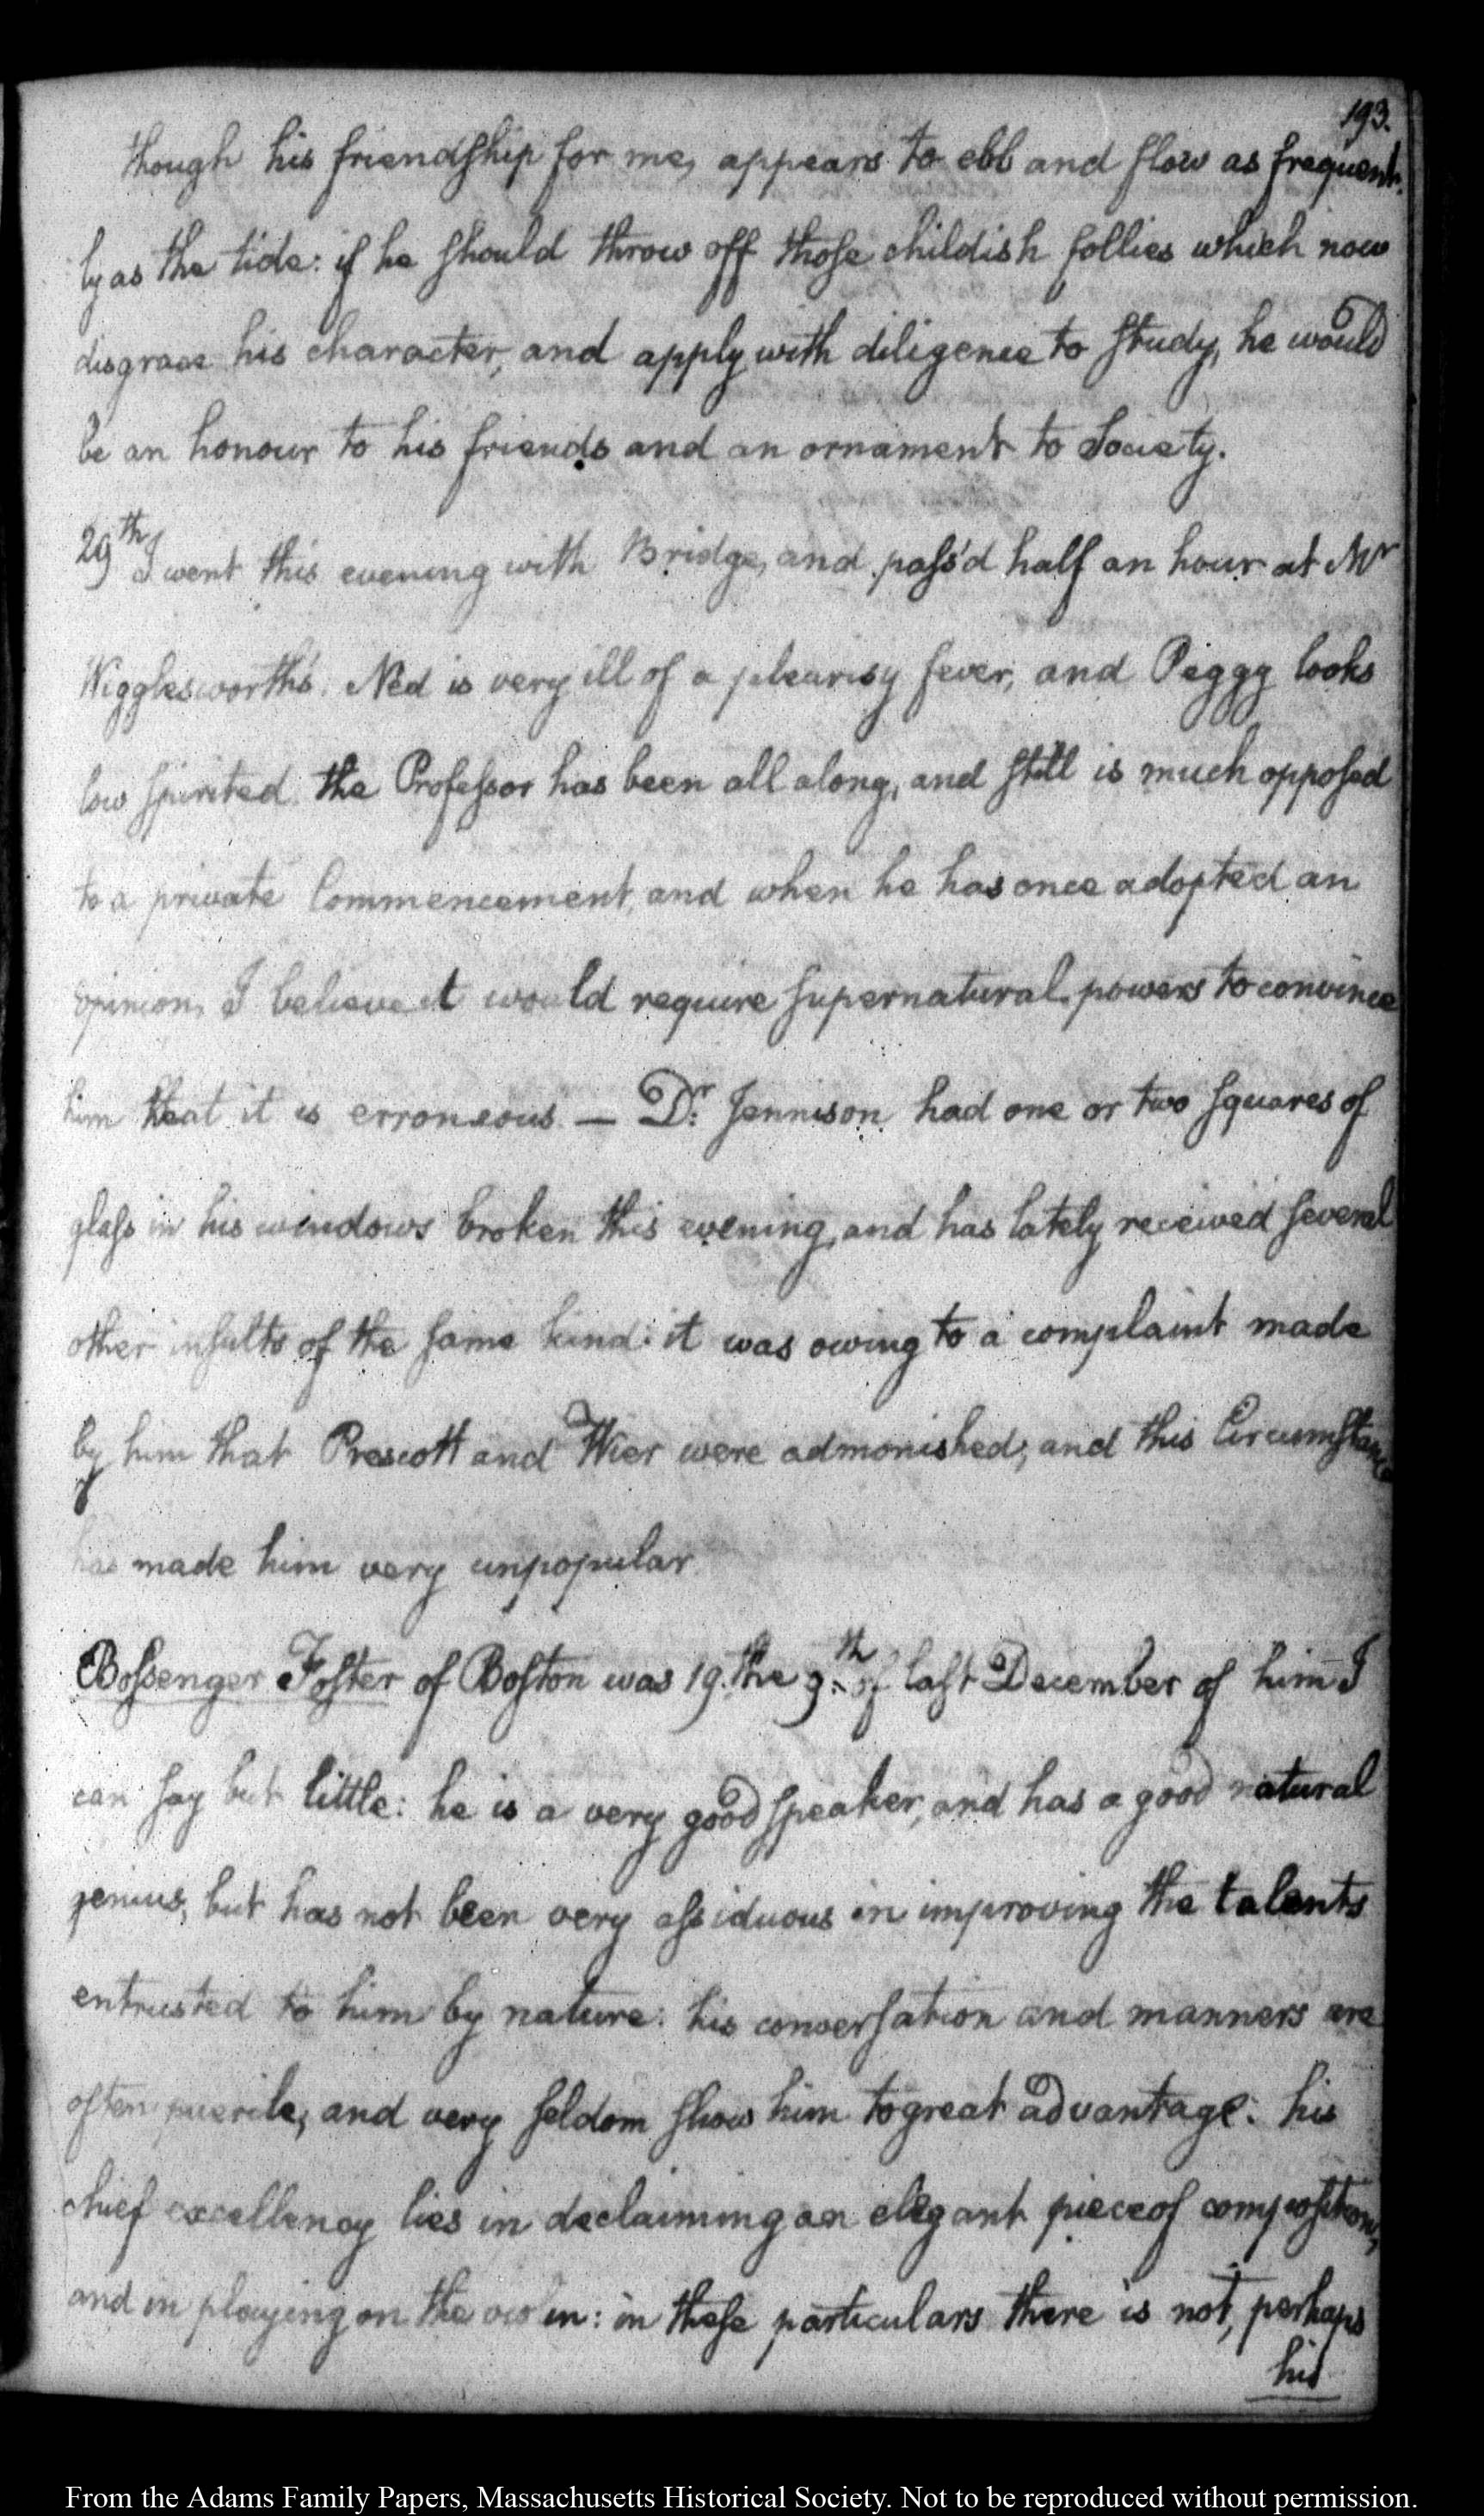 193.
though his friendship for me, appears to ebb and flow as frequent-
ly as the tide: if he should throw off those childish follies which now
disgrace his character, and apply with diligence to study, he would
be an honour to his friends and an ornament to Society.
29th I went this evening with Bridge, and pass'd half an hour at Mr
Wigglesworth's. Ned is very ill of a pleurisy fever, and Peggy looks
low spirited. the Professor has been all along, and still is much opposed
to a private Commencement, and when he has once adopted an
opinion, I believe it would require supernatural powers to convince
him that it is erroneous. — Dr. Jennison had one or two squares of
glass in his windows broken this evening, and has lately received several
other insults of the same kind: it was owing to a complaint made
by him that Prescott and Wier were admonished; and this Circumstance
has made him very unpopular.
Bossenger Foster of Boston was 19. the 9th of last December of him I
can say but little: he is a very good speaker, and has a good natural
genius, but has not been very assiduous in improving the talents
entrusted to him by nature: his conversation and manners are
often puerile, and very seldom show him to great advantage: his
chief excellency lies in declaiming an elegant piece of composition,
and in playing on the violin: in these particulars there is not, perhaps
his
From the Adams Family Papers, Massachusetts Historical Society. Not to be reproduced without permission.